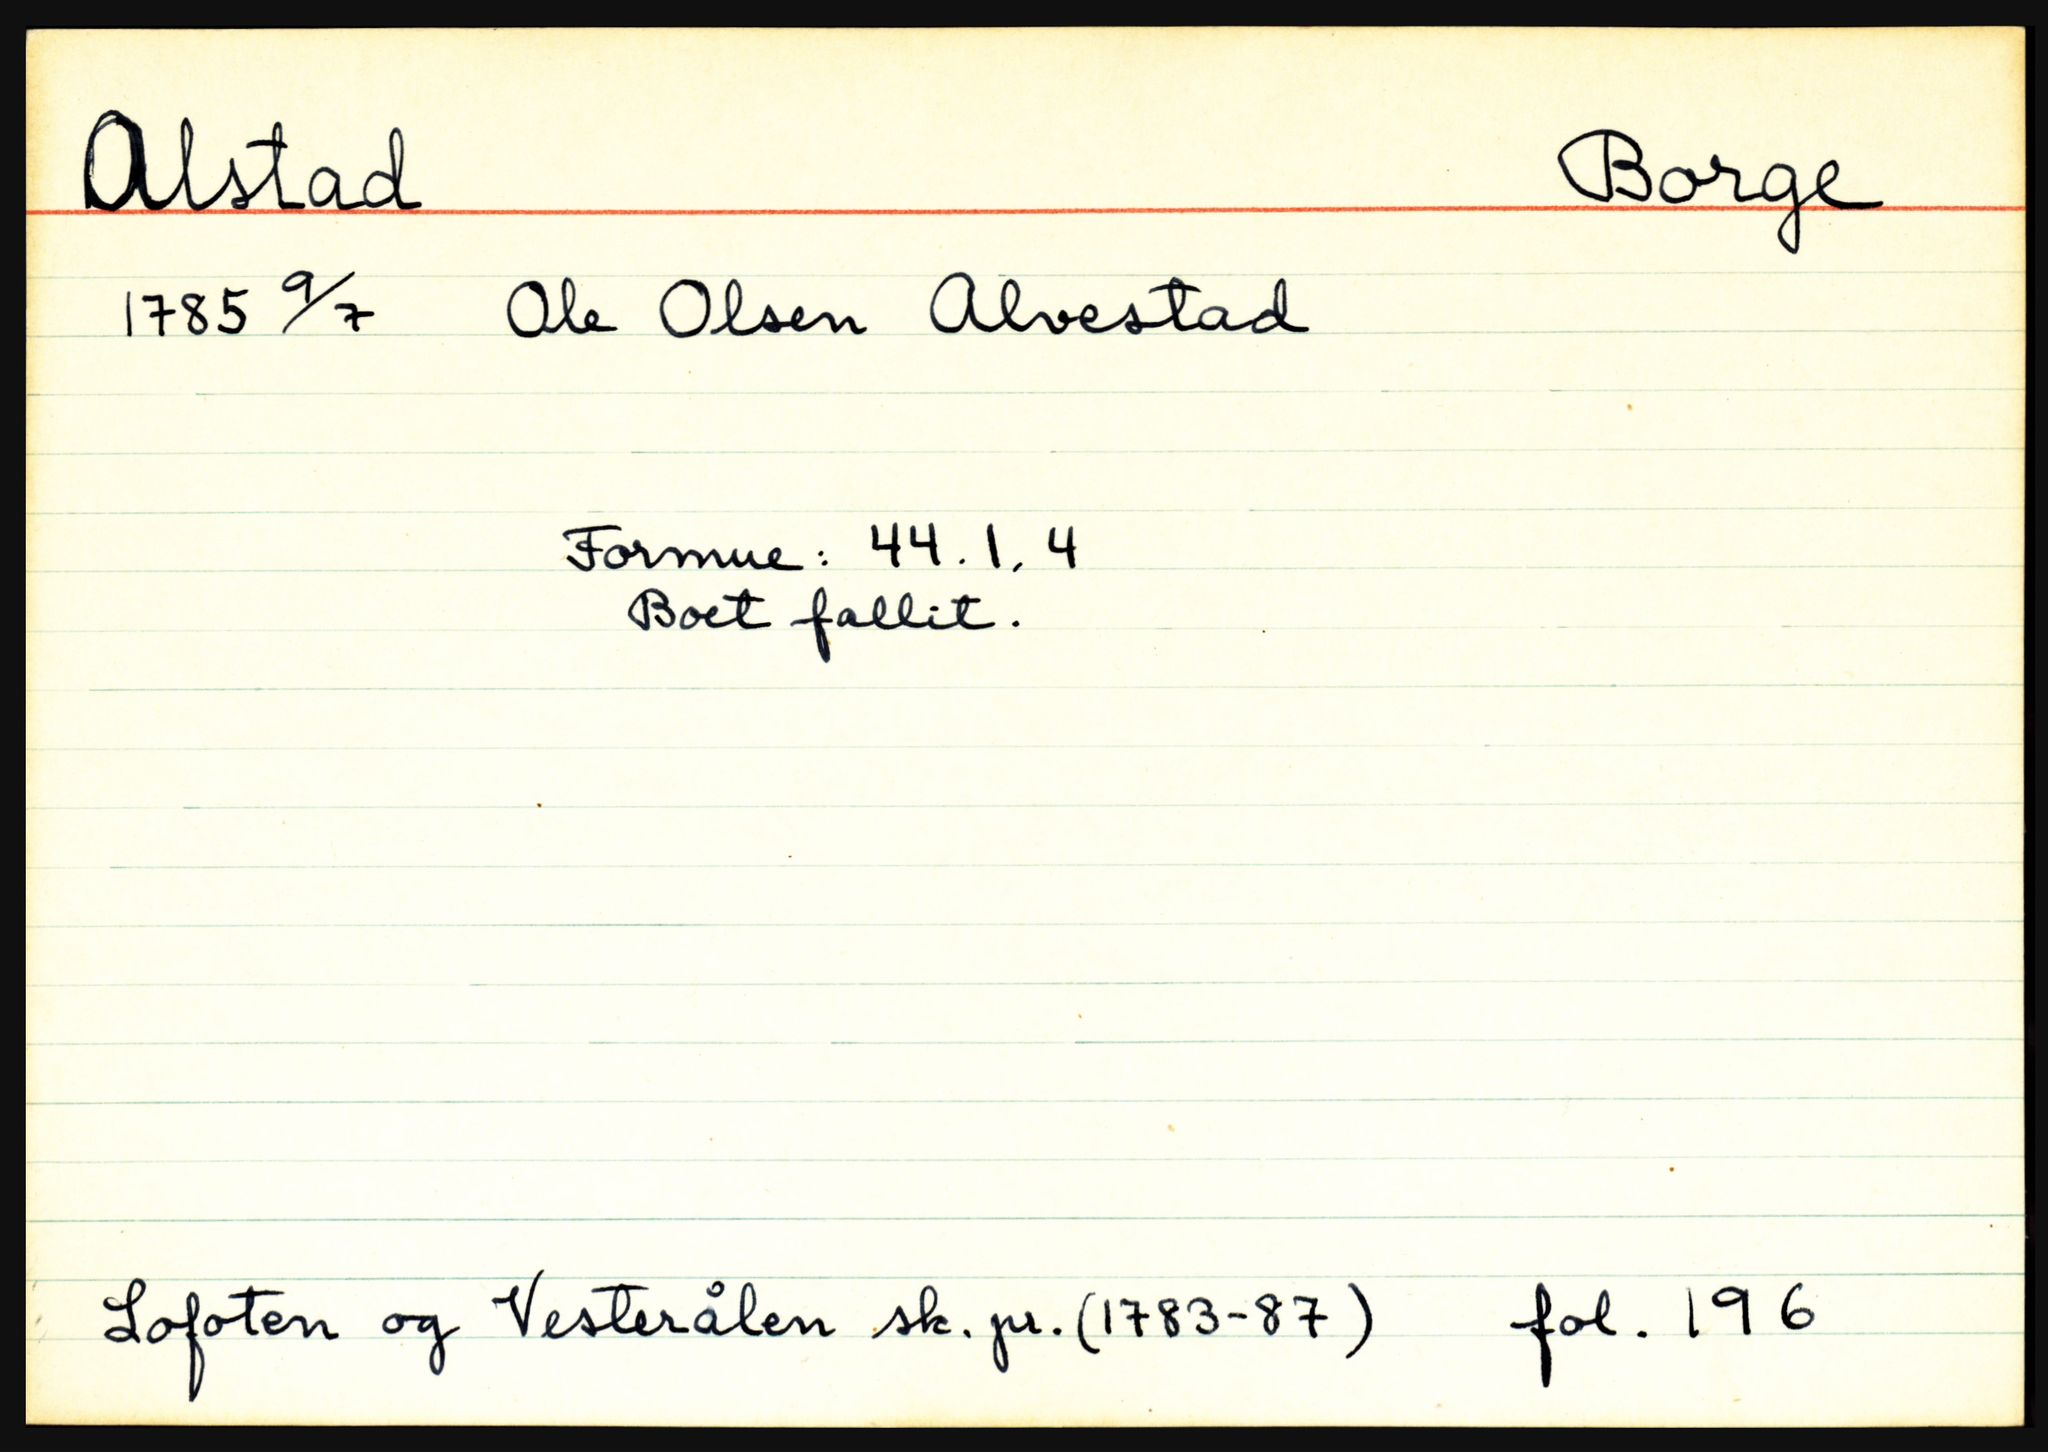 Alstad Borge
1785 9/7 Ole Olsen Alvestad
Formue: 44.1.4
Boet fallit.
Lofoten og Vesterålen sk. pr. (1783-87) fol. 196